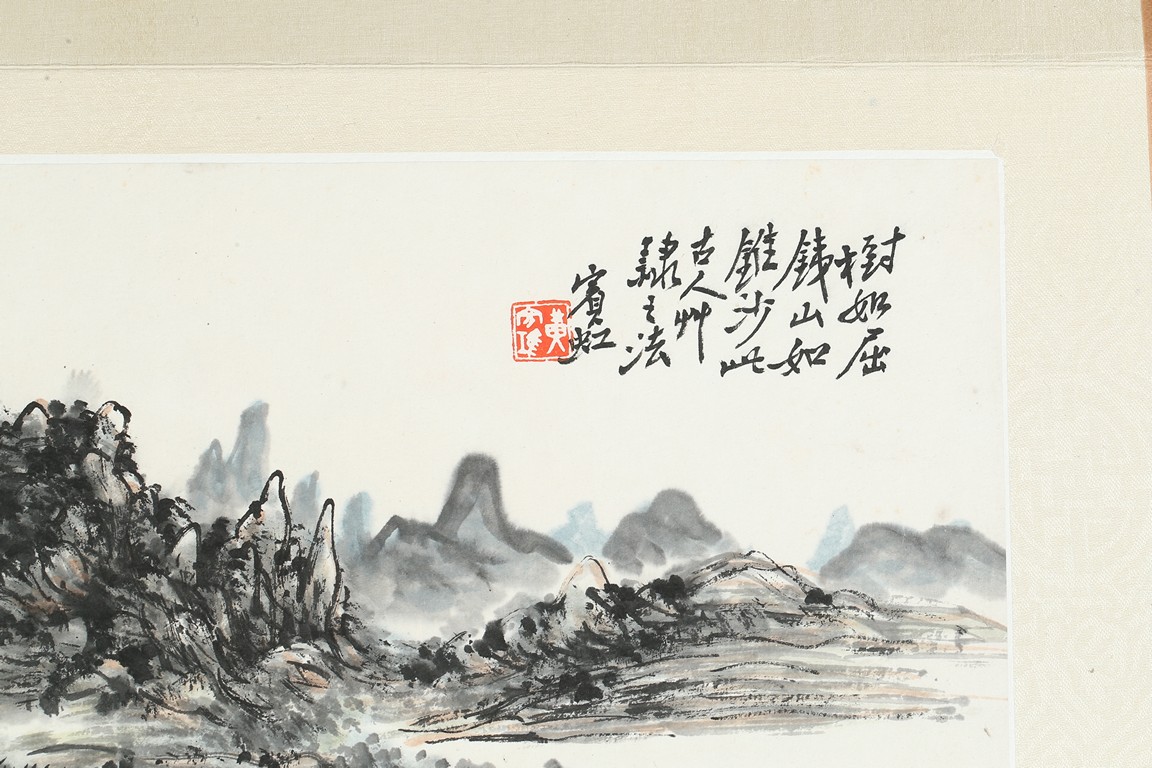 樹如屈
銕山如
錐沙此
古人艸
隸之法
賓虹
黃